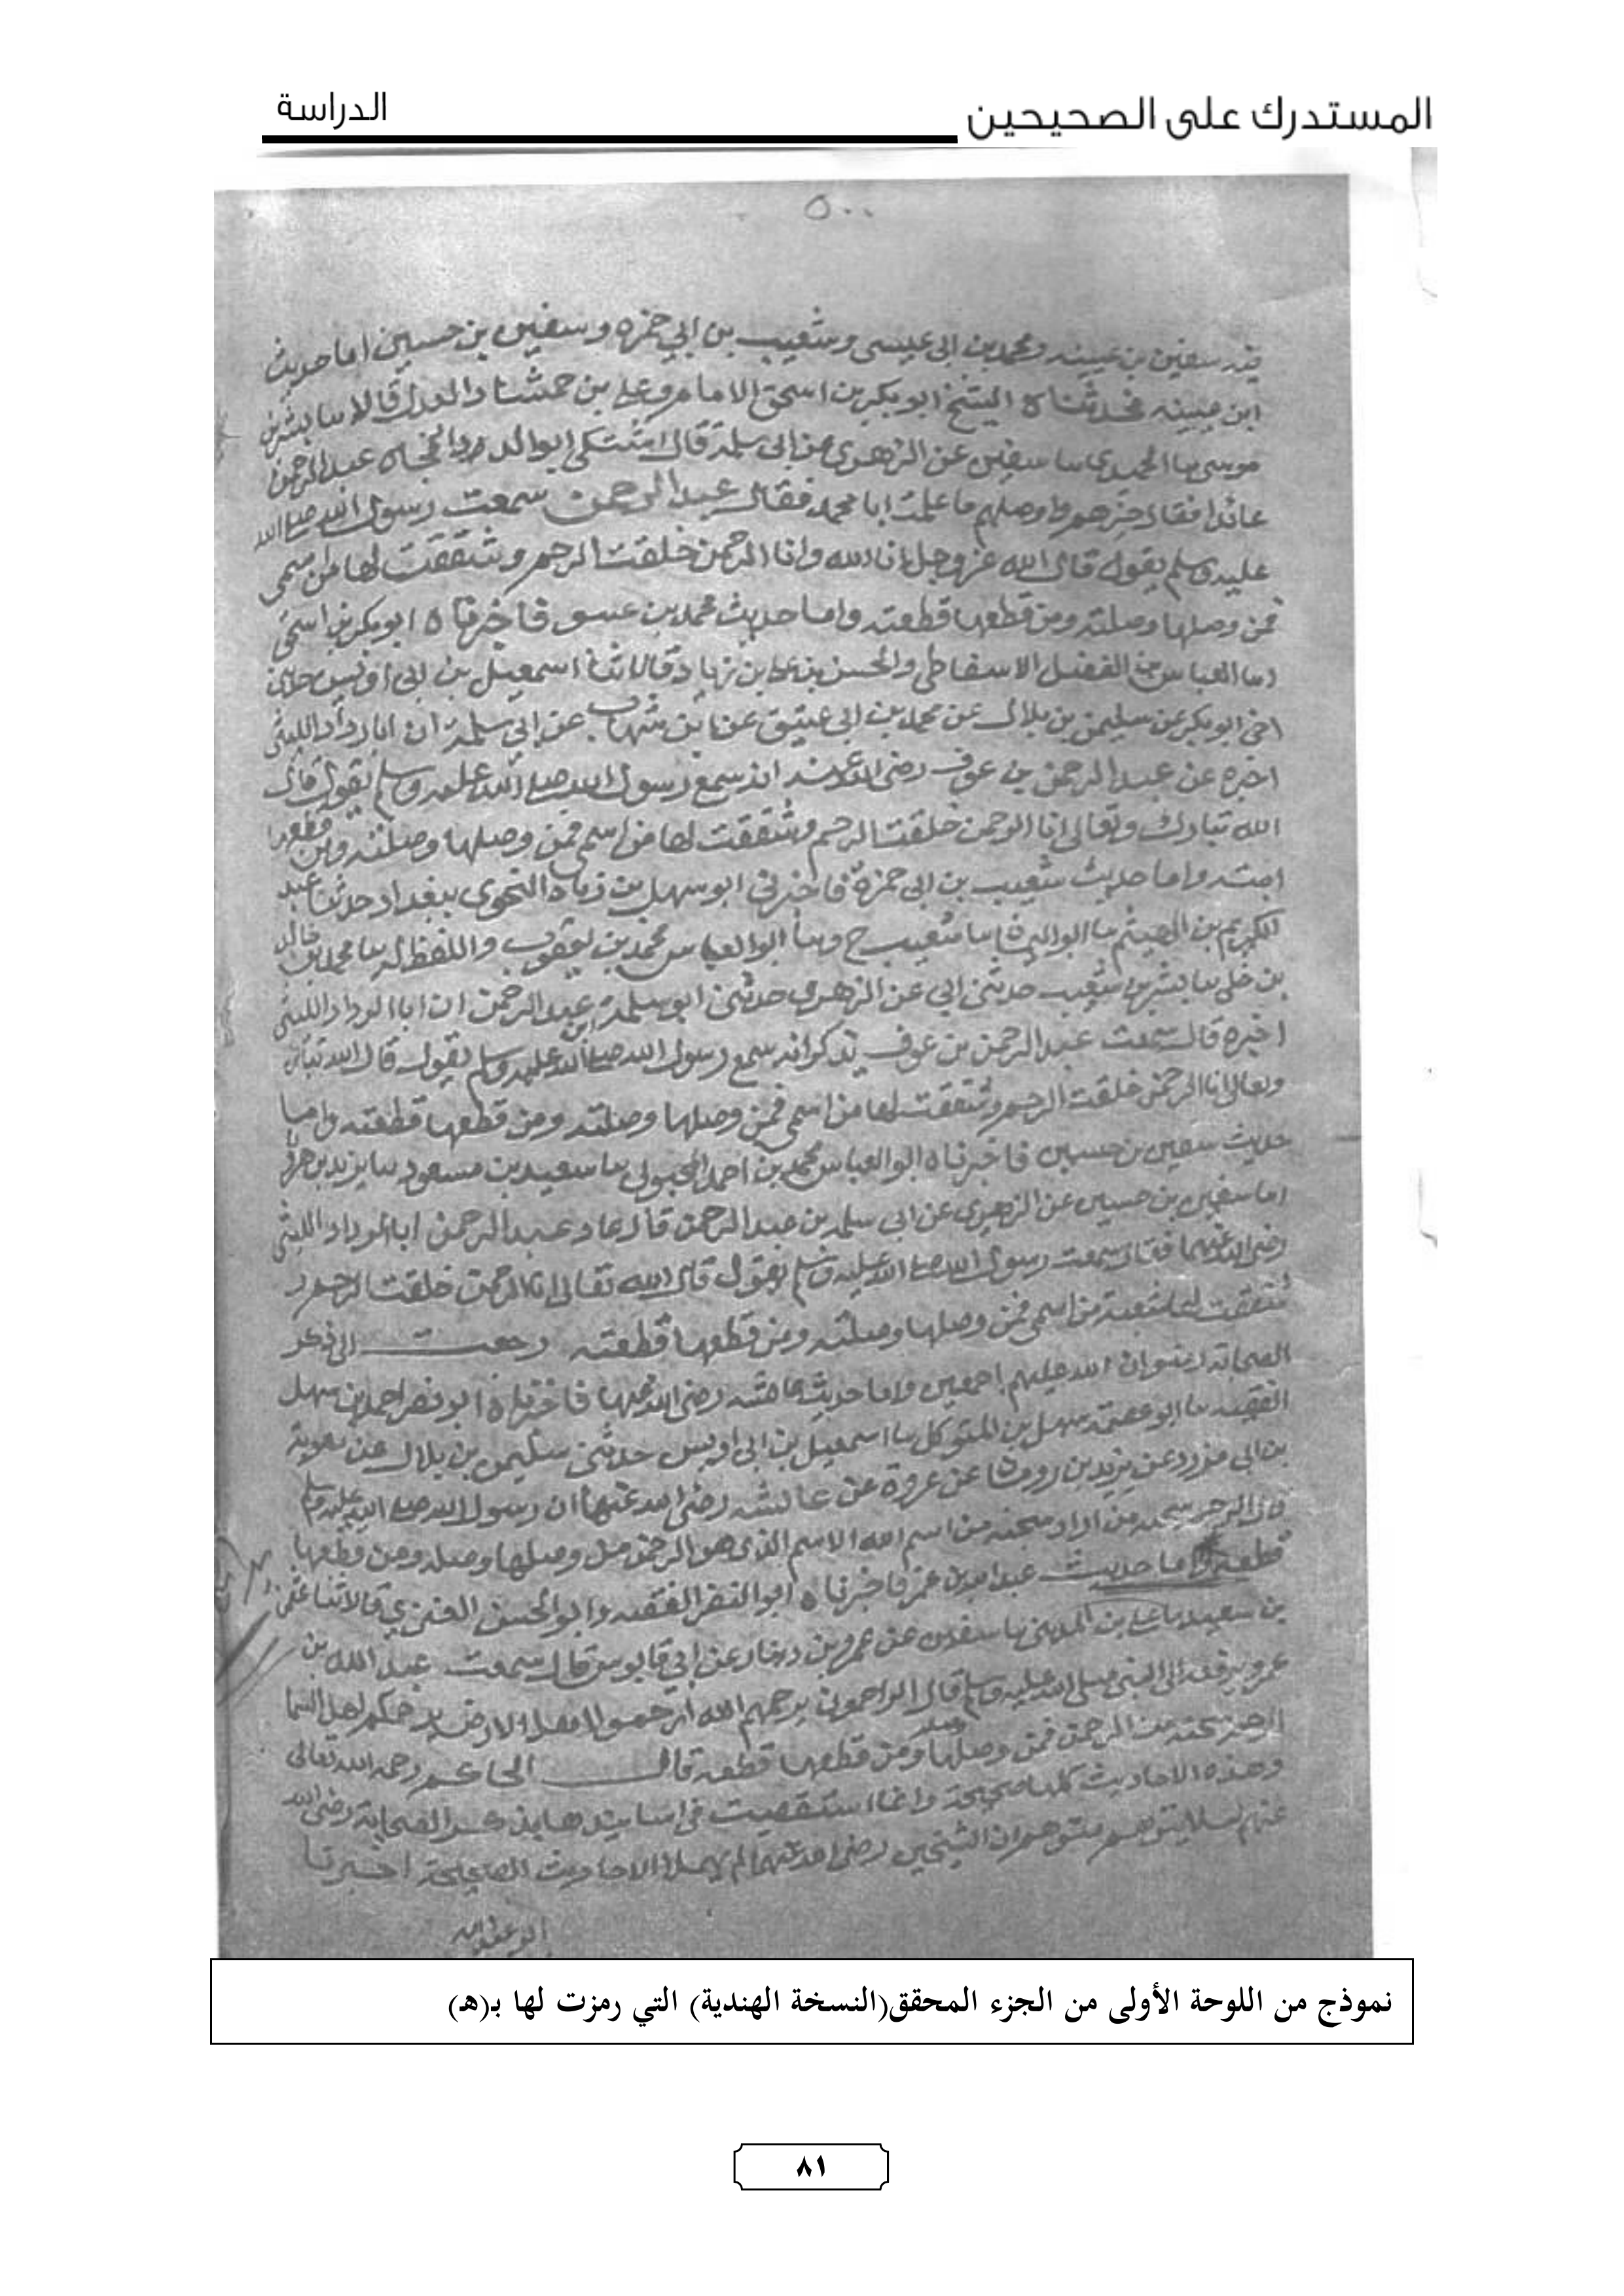 المستدرك على الصحيحين
الدراسة
٥٠٠
سفين بن عيينه ومحمد بن ابى عيسى وشعيب بن ابي حمزه وسفين بن حسين اما حديث
ابن عيينه فحدثناه الشيخ ابو بكر بن اسحق الامام وعلي بن حمشاد العدل قالا بشر بن
موسى الحميدي سفين عن الزهري عن ابى سلمة قال اشتكى ابو الرداد عبد الرحمن
عائدا فقال خيرهم واوصلهم ما علمت ابا محمد فقال عبد الرحمن سمعت رسول الله صلى الله
عليه وسلم يقول قال الله عز وجل انا الله وانا الرحمن خلقت الرحم وشققت لها من اسمى
فمن وصلها وصلته ومن قطعها قطعته واما حديث محمد بن فاخبرناه ابو بكر بن اسحق
العباس بن الفضل الاسفاطي والحسن بن على بن زياد قالا ثنا اسمعيل بن ابى اويس حدثنى
اخى ابو بكر عن سليمن بن بلال عن محمد بن ابى عتيق عن ابن شهاب عن ابي سلمة ان ابا رداد الليثى
اخبره عن عبد الرحمن بن عوف رضى الله عنه انه سمع رسول الله صلى الله عليه وسلم يقول قال
الله تبارك وتعالى انا الرحمن خلقت الرحم وشققت لها من اسمى فمن وصلها وصلته ومن قطعها
واما حديث شعيب بن ابى حمزة فاخبرنى ابو سهل بن زياد النحوى ببغداد حدثنا عبد
الكريم بن الهيثم ابو اليمان شعيب ح ابو العباس محمد بن يعقوب واللفظ له محمد بن خالد
بن خلى بشر بن شعيب حدثنى ابي عن الزهرى حدثنى ابو سلمة بن عبد الرحمن ان ابا الرداد الليثى
اخبره قال سمعت عبد الرحمن بن عوف يذكر انه سمع رسول الله صلى الله عليه وسلم يقول قال الله تبارك
وتعالى انا الرحمن خلقت الرحم وشققت لها من اسمى فمن وصلها وصلته ومن قطعها قطعته واما
حديث سفين بن حسين فاخبرناه ابو العباس محمد بن احمد المحبوبى سعيد بن مسعود يزيد بن هرون
سفين بن حسين عن الزهرى عن ابي سلمه بن عبد الرحمن قال عاد عبد الرحمن ابا الرداد الليثى
رضى الله عنهما فقال سمعت رسول الله صلى الله عليه وسلم يقول قال الله تعالى انا الرحمن خلقت الرحم و
شققت لها شعبة من اسمى فمن وصلها وصلته ومن قطعها قطعته رجعت الى ذكر
الصحابة رضوان الله عليهم اجمعين واما حديث عائشه رضى الله عنها فاخبرناه ابو نصر احمد بن سهل
الفقيه ابو عصمة سهل بن المتوكل اسمعيل بن ابى اويس حدثنى سليمن بن بلال عن معوية
بن ابى مزرد عن يزيد بن رومان عن عروة عن عائشه رضى الله عنها ان رسول الله صلى الله عليه وسلم
قال الرحم شجنه من الله الاسم الذى هو الرحمن وصلها وصله ومن قطعها
قطعه واما حديث عبد الله بن عمر فاخبرناه ابو النضر الفقيه وابو الحسن العنزي قالا ثنا عثمن
بن سعيد على بن المدينى سفين عن عمرو بن دينار عن ابي قابوس قال سمعت عبد الله بن
عمرو يرفعه الى النبى صلى الله عليه وسلم قال الراحمون يرحمهم الله ارحموا اهل الارض يرحمكم اهل السما
الرحم شجنه من الرحمن فمن وصلها وصله ومن قطعها قطعه قال الحاكم رحمه الله تعالى
وهذه الاحاديث كلها صحيحة وانما استقصيت فى اسانيدها بذكر الصحابة رضى الله
عنهم لئلا يتوهم متوهم ان الشيخين رضى الله عنهما لم يهملا الاحاديث الصحيحة اخبرنا
ابو عبد الله
نموذج من اللوحة الأولى من الجزء المحقق(النسخة الهندية) التي رمزت لها بـ(هـ)
٨١